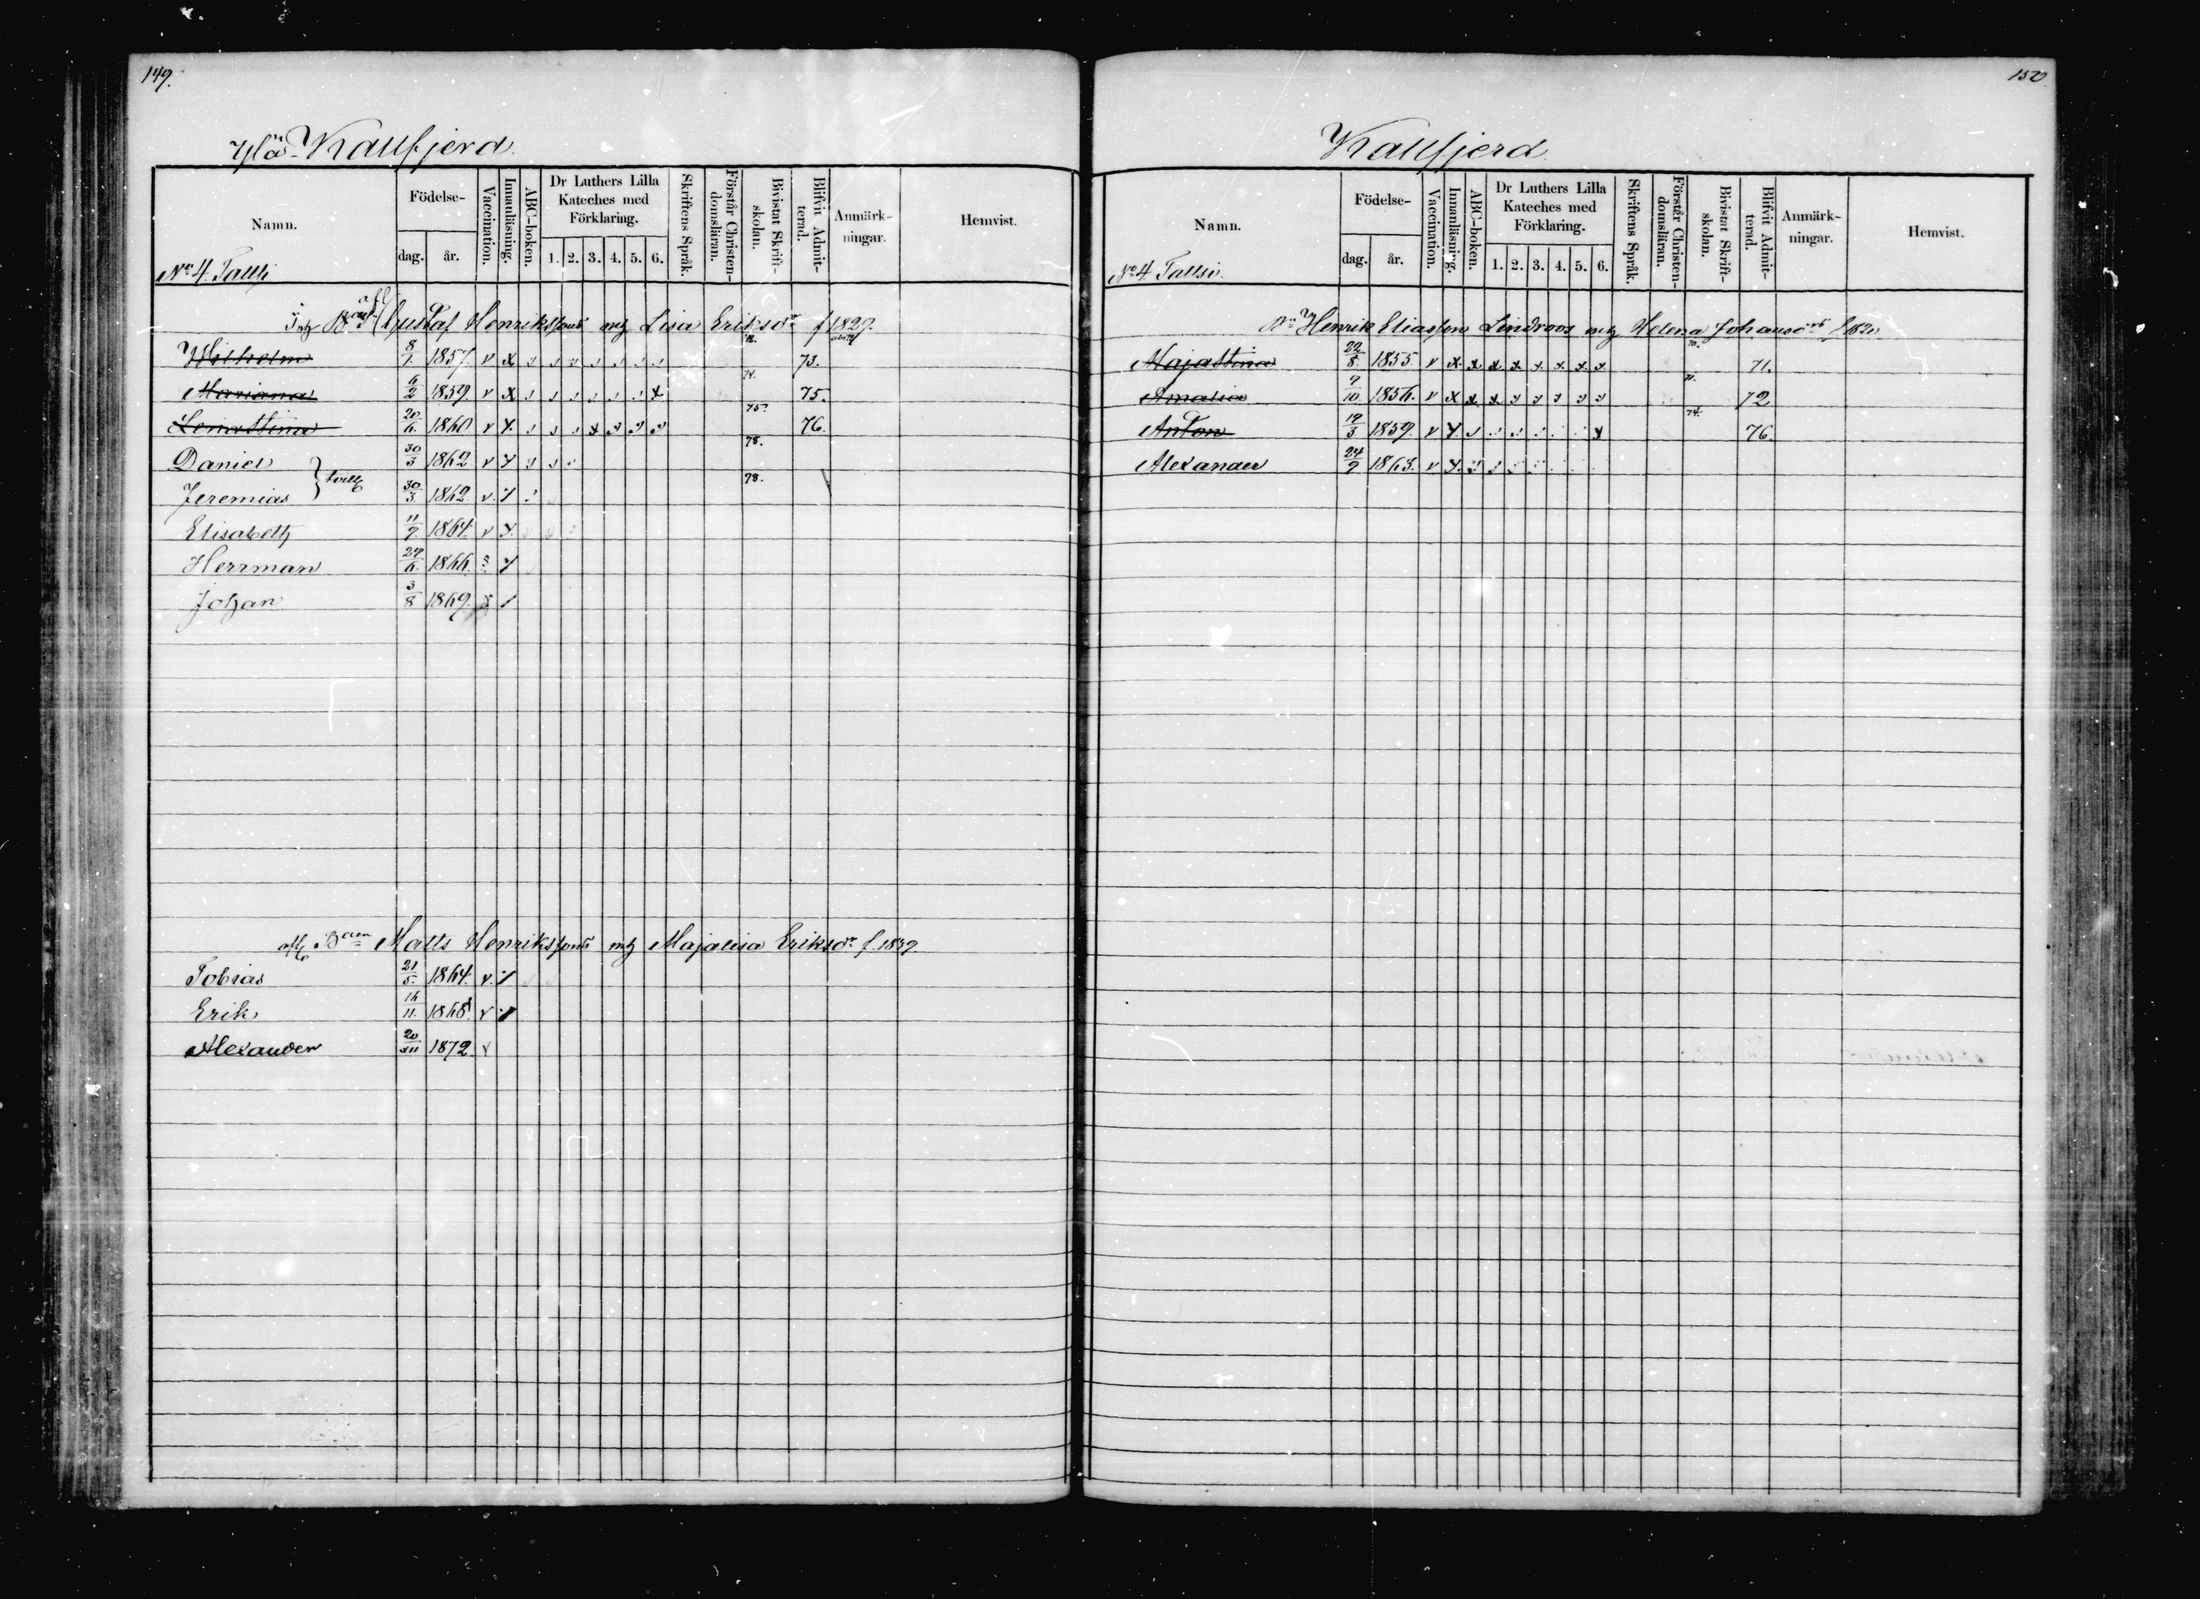 149.
Ylä-Kallfjerd.
Namn.
Födelse-
dag. år.
Vaccination.
Innanläsning.
ABC-boken.
Dr Luthers Lilla Kateches med Förklaring.
1. 2. 3. 4. 5. 6.
Skriftens Språk.
Förstår Christen-domsläran.
Bivistat Skrift-skolan.
Blifvit Admit-terad.
Anmärk-ningar.
Hemvist.
No 4 Talls
Gustaf Henrikssons m Lisa Eriksdr f 1829.
Wilhelm 8/1 1857. v x 72. 73.
Mariana 6/2 1859 v x 74. 75.
Lenastina 20/6 1860 v 75. 76.
Daniel 30/3 1862 v 78.
Jeremias 30/3 1862. v. 78.
Elisabeth 11/9 1864. v
Herrman 1866.
Johan 3/8 1869.
Matts Henrikssons m Majalisa Eriksdr f. 1839
Tobias 21/5 1864. v.
Erik 16/11 1868. v
Alexander 20/XII 1872 v
150
Kallfjerd.
Namn.
Födelse-
dag. år.
Vaccination.
Innanläsning.
ABC-boken.
Dr Luthers Lilla Kateches med Förklaring.
1. 2. 3. 4. 5. 6.
Skriftens Språk.
Förstår Christen-domsläran.
Bivistat Skrift-skolan.
Blifvit Admit-terad.
Anmärk-ningar.
Hemvist.
No 4 Tallsi.
Henrik Eliasson Lindroos m Helena Johansdrs
Majastina 22/8 1855 v x x x x x x x x 70. 71.
Amalia 9/10 1856. v x x 71. 72
Anton 1859. v 74. 76
Alexander 24/9 1863. v